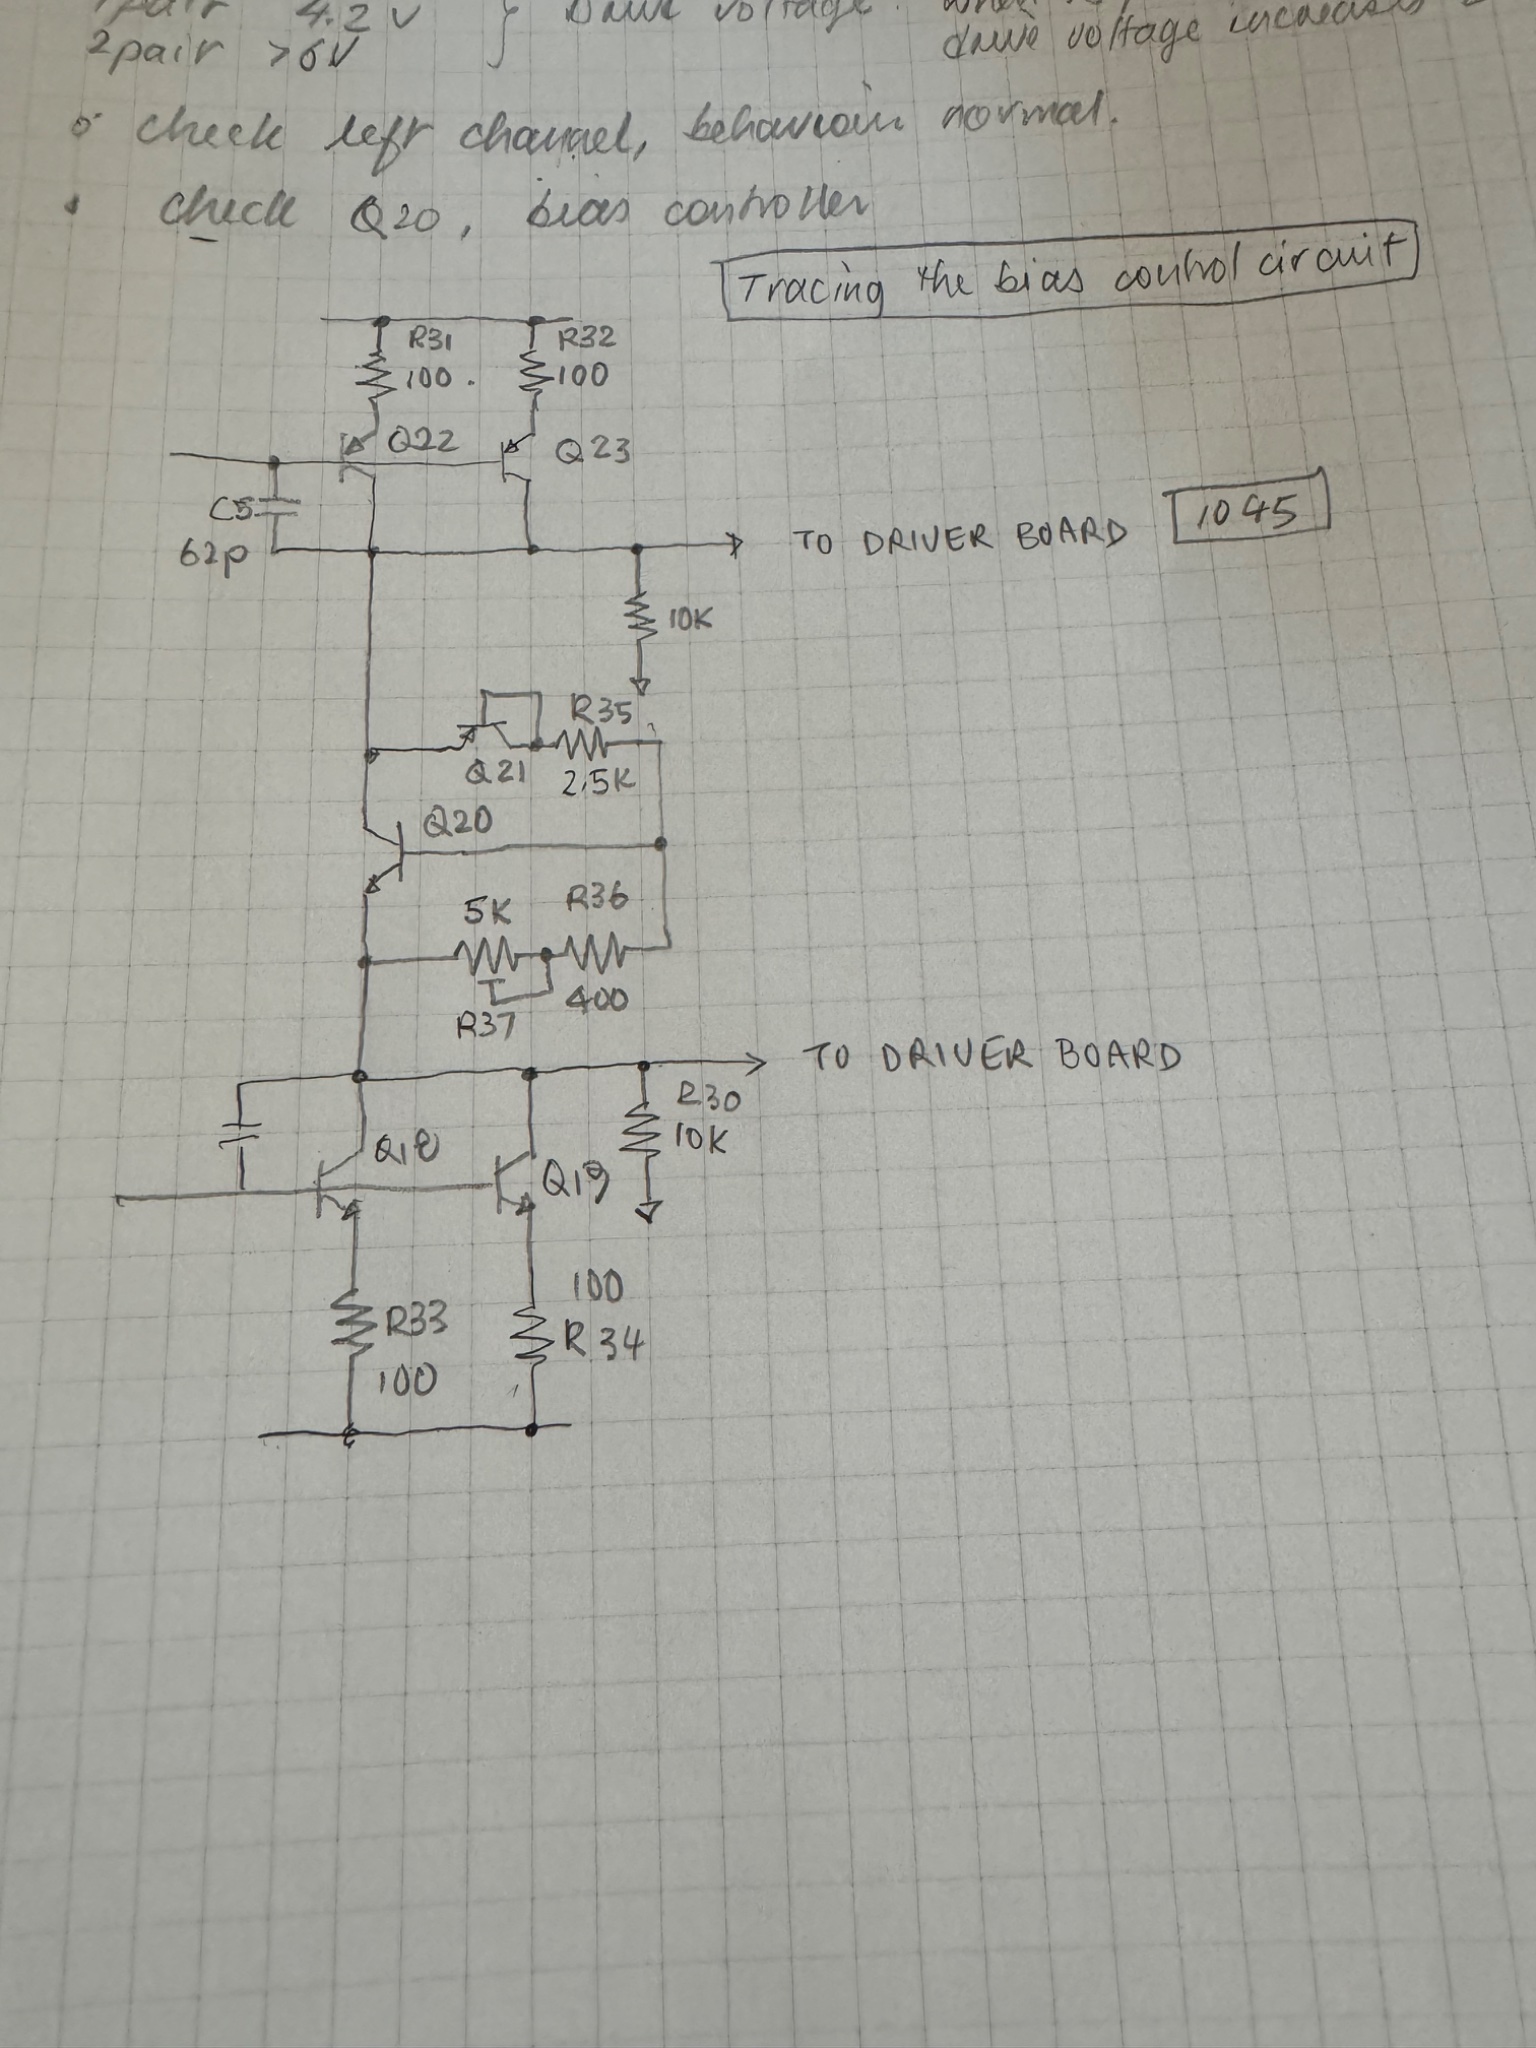 1 pair 4.2 V } Drive voltage. when
2 pair >6V drive voltage increases
check left channel, behaviour normal.
check Q20, bias controller
Tracing the bias control circuit
R31 R32
100. 100
Q22 Q23
C5
62p
TO DRIVER BOARD 1045
10K
R35
Q21 2.5K
Q20
5K R36
R37 400
TO DRIVER BOARD
R30
10K
Q18 Q19
100
R33 R34
100